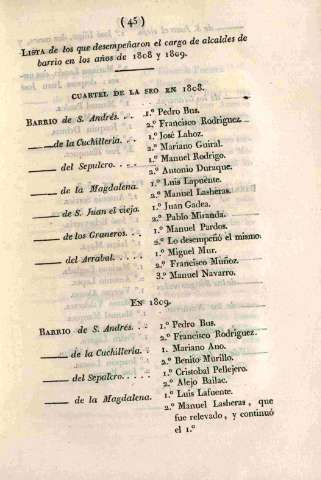 (45)
LISTA de los que desempeñaron el cargo de alcaldes de
barrio en los años de 1808 y 1809.
CUARTEL DE LA SEO EN 1808.
BARRIO de S. Andrés. . . 1.º Pedro Bus.
2.º Francisco Rodriguez.
—— de la Cuchilleria. . 1.º José Lahoz.
2.º Mariano Guiral.
—— del Sepulcro. . . . 1.º Manuel Rodrigo.
2.º Antonio Duraque.
—— de la Magdalena. 1.º Luis Lapuente.
2.º Manuel Lasheras.
—— de S. Juan el viejo. 1.º Juan Gadea.
2.º Pablo Miranda.
—— de los Graneros. . . 1.º Manuel Pardos.
2.º Lo desempeñó el mismo.
—— del Arrabal. . . . 1.º Miguel Mur.
2.º Francisco Muñoz.
3.º Manuel Navarro.
EN 1809.
BARRIO de S. Andrés. . . 1.º Pedro Bus.
2.º Francisco Rodriguez.
—— de la Cuchilleria. . 1. Mariano Ano.
2.º Benito Murillo.
—— del Sepulcro. . . . . 1.º Cristobal Pellejero.
2.º Alejo Bailac.
—— de la Magdalena. 1.º Luis Lafuente.
2.º Manuel Lasheras, que
fue relevado, y continuó
el 1.º